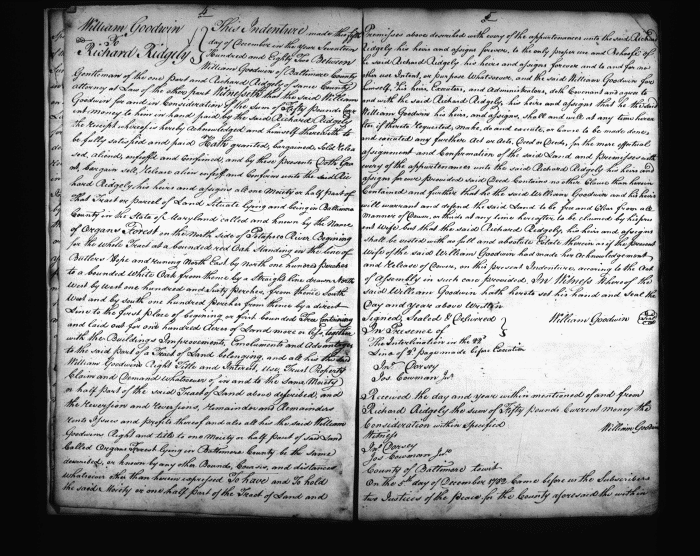 William Goodwin
To
Richard Ridgely
This Indenture made this fifth
day of December in the Year Seventeen
Hundred and Eighty Two Between
William Goodwin of Baltimore County
Gentleman of the one part and Richard Ridgely of same County
attorney at Law of the other part Witnesseth that the said William
Goodwin for and in Consideration of the Sum of Fifty Pounds Curr
ent money to him in hand paid by the said Richard Ridgely
the Receipt whereof is hereby Acknowledged and himself therewith to
be fully satisfied and paid Hath granted, bargained, Sold Relea
sed, aliened, enfeoffed and Confirmed, and by these presents Doth Gra
nt, bargain Sell, Release alien enfeoff and Confirm unto the said Ric
hard Ridgely, his heirs and assigns all one Moiety or half part of
That Tract or Parcel of Land Situate lying and being in Baltimore
County in the State of Maryland called and known by the Name
of Organs Forrest on the North side of Patapsco River Begining
for the whole Tract at a bounded red Oak Standing in the line of
Butlers Hope and running North East by North one hundred perches
to a bounded White Oak from thence by a Straight line drawn North
West by West one hundred and Sixty perches, from thence South
West and by South one hundred perches from thence by a direct
Line to the first place of begining or first bounded Tree Containing
and laid out for one hundred Acres of Land more or less, together
with the Buildings Improvements, Emoluments and Advantages
to the said part of a Tract of Land belonging, and all his the said
William Goodwins Right Title and Interest, Use Trust Property
Claim and Demand whatsoever of in and to the Same Moiety
or half part of the said Tract of Land above described, and
the Reversion and Reversions, Remainder and Remainders
rents Issues and profits thereof and also all his the said William
Goodwins Right and title to one Moiety or half part of said Land
Called Organs Forest lying in Baltimore County be the same
described, or known by any other Bounds, Course, and distances
whatsoever other than herein expressed To have and To hold
the said Moiety or one half part of the Tract of Land and
Premises above described with every of the appurtenances unto the said Richard
Ridgely his heirs and assigns forever, to the only proper use and Behoof of
the said Richard Ridgely his heirs and assigns forever and to and for no
other use Intent, or purpose Whatsoever, and the said William Goodwin for
himself, his heirs, Executors, and Administrators, doth Covenant and agree to
and with the said Richard Ridgely, his heirs and assigns that he the said
William Goodwin his heirs, and assigns, shall and will at any time hereaf
ter, if thereto Requested, make, do and execute, or Cause to be made done,
and executed any further Act or Acts, Deed or Deeds, for the more effectual
assignment and Confirmation of the said Land and Premisses with
every of the appurtenances unto the said Richard Ridgely his heirs and
assigns forever provided said Deed Contains no other Clause than herein
Contained and further that he the said William Goodwin and his heirs
will warrant and defend the said Land to be free and Clear from all
Manner of Dower, or thirds at any time hereafter, to be claimed by his pres
ent Wife but that the said Richard Ridgely, his heirs and assigns
Shall be vested with as full and absolute Estate therein as if the present
Wife of the said William Goodwin had made her Acknowledgement
and Release of Dower, on this present Indenture, according to the Act
of Assembly in such case provided, In Witness Whereof the
said William Goodwin hath hereto set his hand and Seal the
Day and Year above Written
Signed, Sealed & Delivered
In Presence of
William Goodwin
Seal
The Interlineation in the 22d
Line of 2d page made before Execution
Jno Dorsey
Jos. Cowman Jr
Received the day and Year within mentioned of and from
Richard Ridgely the sum of Fifty pounds Current money the
Consideration within Specified
William Goodwin
Witness
Jno Dorsey
Jos Cowman Jr
County of Baltimore towit
On the 5th day of December 1782 Came before us the Subscribers
two Justices of the Peace for the County aforesaid the within